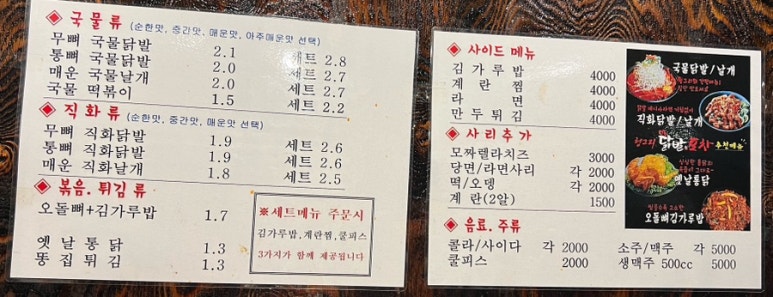 ◈ 국물류 (순한맛, 중간맛, 매운맛, 아주매운맛 선택)
무뼈 국물닭발 2.1 세트 2.8
통뼈 국물닭발 2.0 세트 2.7
매운 국물날개 2.0 세트 2.7
국물 떡볶이 1.5 세트 2.2
◈ 직화류 (순한맛, 중간맛, 매운맛 선택)
무뼈 직화닭발 1.9 세트 2.6
통뼈 직화닭발 1.9 세트 2.6
매운 직화날개 1.8 세트 2.5
◈ 볶음.튀김 류
오돌뼈+김가루밥 1.7
옛날통닭 1.3
똥집튀김 1.3
※세트메뉴 주문시
김가루밥,계란찜,쿨피스
3가지가 함께 제공됩니다
◈ 사이드 메뉴
김가루밥 4000
계란찜 4000
라면 4000
만두튀김 4000
◈ 사리추가
모짜렐라치즈 3000
당면/라면사리 각 2000
떡/오뎅 각 2000
계란(2알) 1500
◈ 음료. 주류
콜라/사이다 각 2000 소주/맥주 각 5000
쿨피스 2000 생맥주 500cc 5000
국물닭발/날개
직화닭발/날개
닭발.포차
추천메뉴
옛날통닭
오돌뼈김가루밥